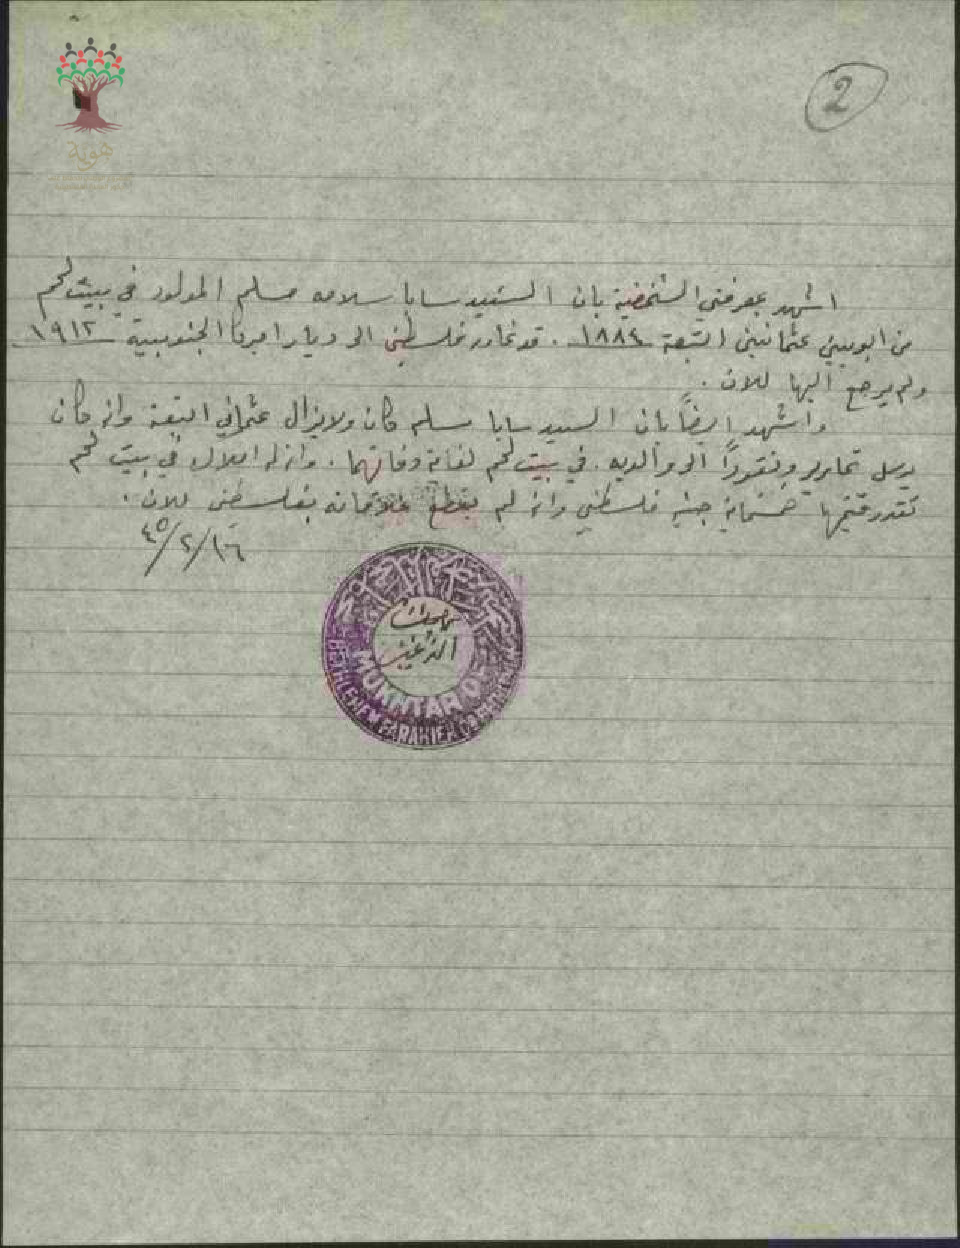 2
هوية
اشهد بمعرفتي الشخصية بان السيد سابا سلامه مسلم المولود في بيت لحم
من ابويين عثمانيين التبعة ١٨٨٤ . قد غادر فلسطين الى ديار اميركا الجنوبية ١٩١٢
ولم يرجع اليها للان .
واشهد ايضاً بان السيد سابا مسلم كان ولا يزال عثماني التبعة وانه كان
يرسل تحارير ونقوداً الى والديه . في بيت لحم لغاية وفاتهما . وانه له املاك في بيت لحم
تقدر قيمتها خمسماية جنيه فلسطيني وانه لم يقطع علاقاته بفلسطين للان .
١٦/٢/٤٥
MUKHTAR OF
BETHLEHEM FARAHIEH